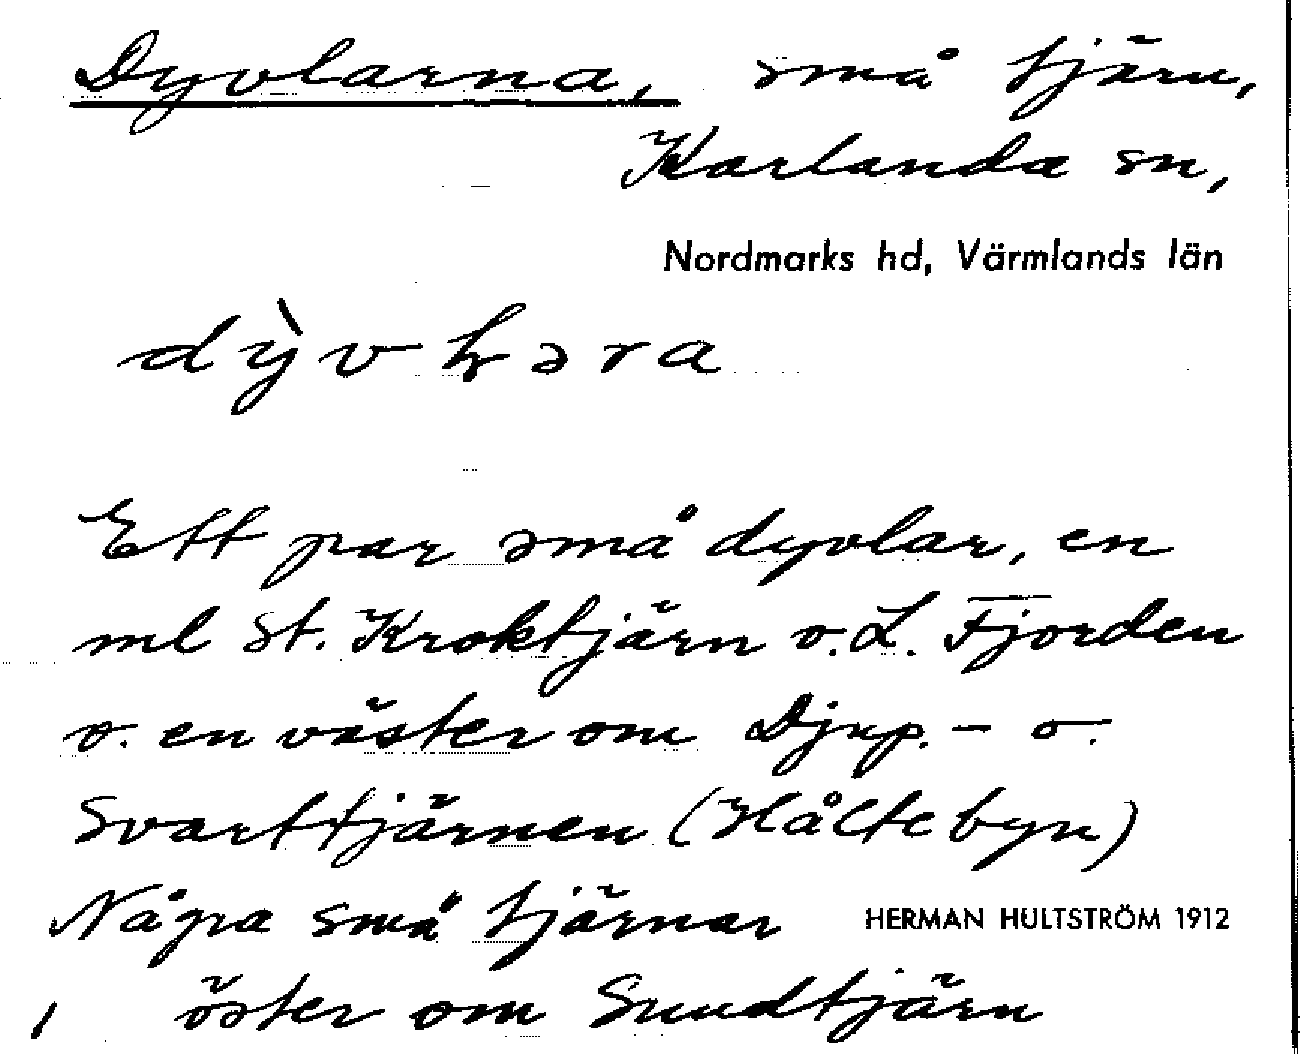 Dyvlarna, små tjärn,
Karlanda sn,
Nordmarks hd, Värmlands län
Ett par små dyvlar, en
ml St. Kroktjärn o. L. Fjorden
o. en väster om Djup.- o.
Svarttjärnen (Håltebyn)
Några små tjärnar
HERMAN HULTSTRÖM 1912
öster om Sundtjärn